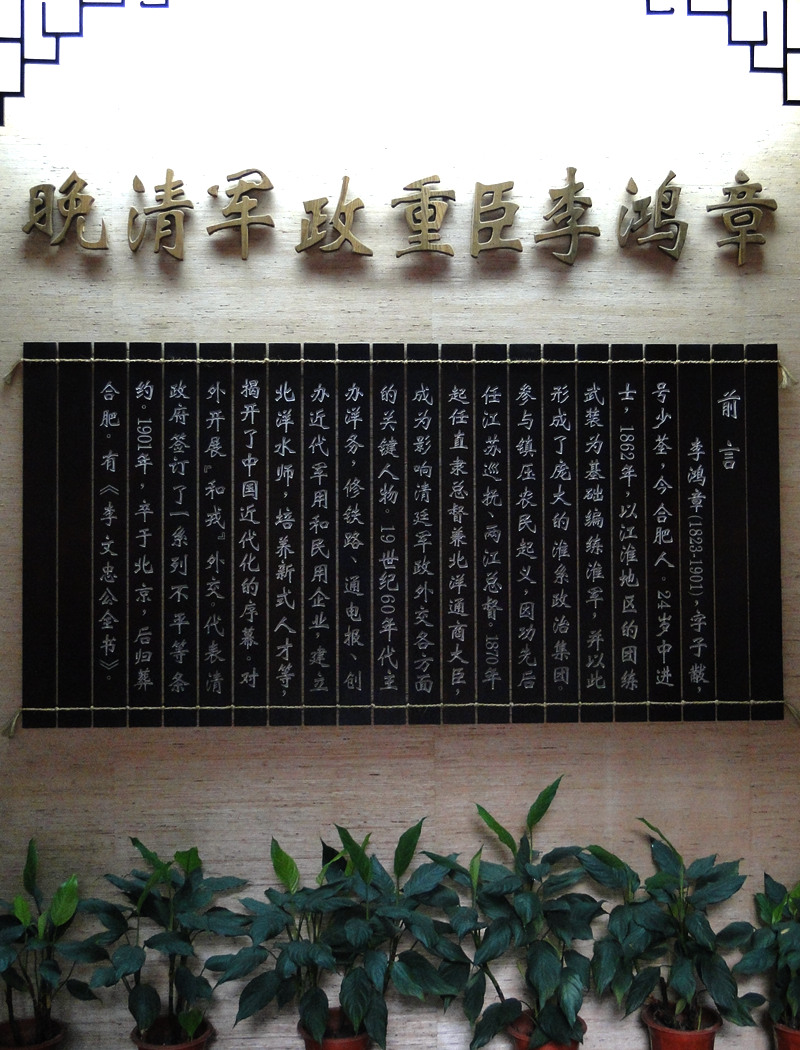 晚清军政重臣李鸿章
前言
李鸿章(1823-1901)，字子黻，
号少荃，今合肥人。24岁中进
士，1862年，以江淮地区的团练
武装为基础编练淮军，并以此
形成了庞大的淮系政治集团。
参与镇压农民起义，因功先后
任江苏巡抚、两江总督。1870年
起任直隶总督兼北洋通商大臣，
成为影响清廷军政外交各方面
的关键人物。19世纪60年代主
办洋务，修铁路、通电报、创
办近代军用和民用企业，建立
北洋水师，培养新式人才等，
揭开了中国近代化的序幕。对
外开展『和戎』外交。代表清
政府签订了一系列不平等条
约。1901年，卒于北京，后归葬
合肥。有《李文忠公全书》。